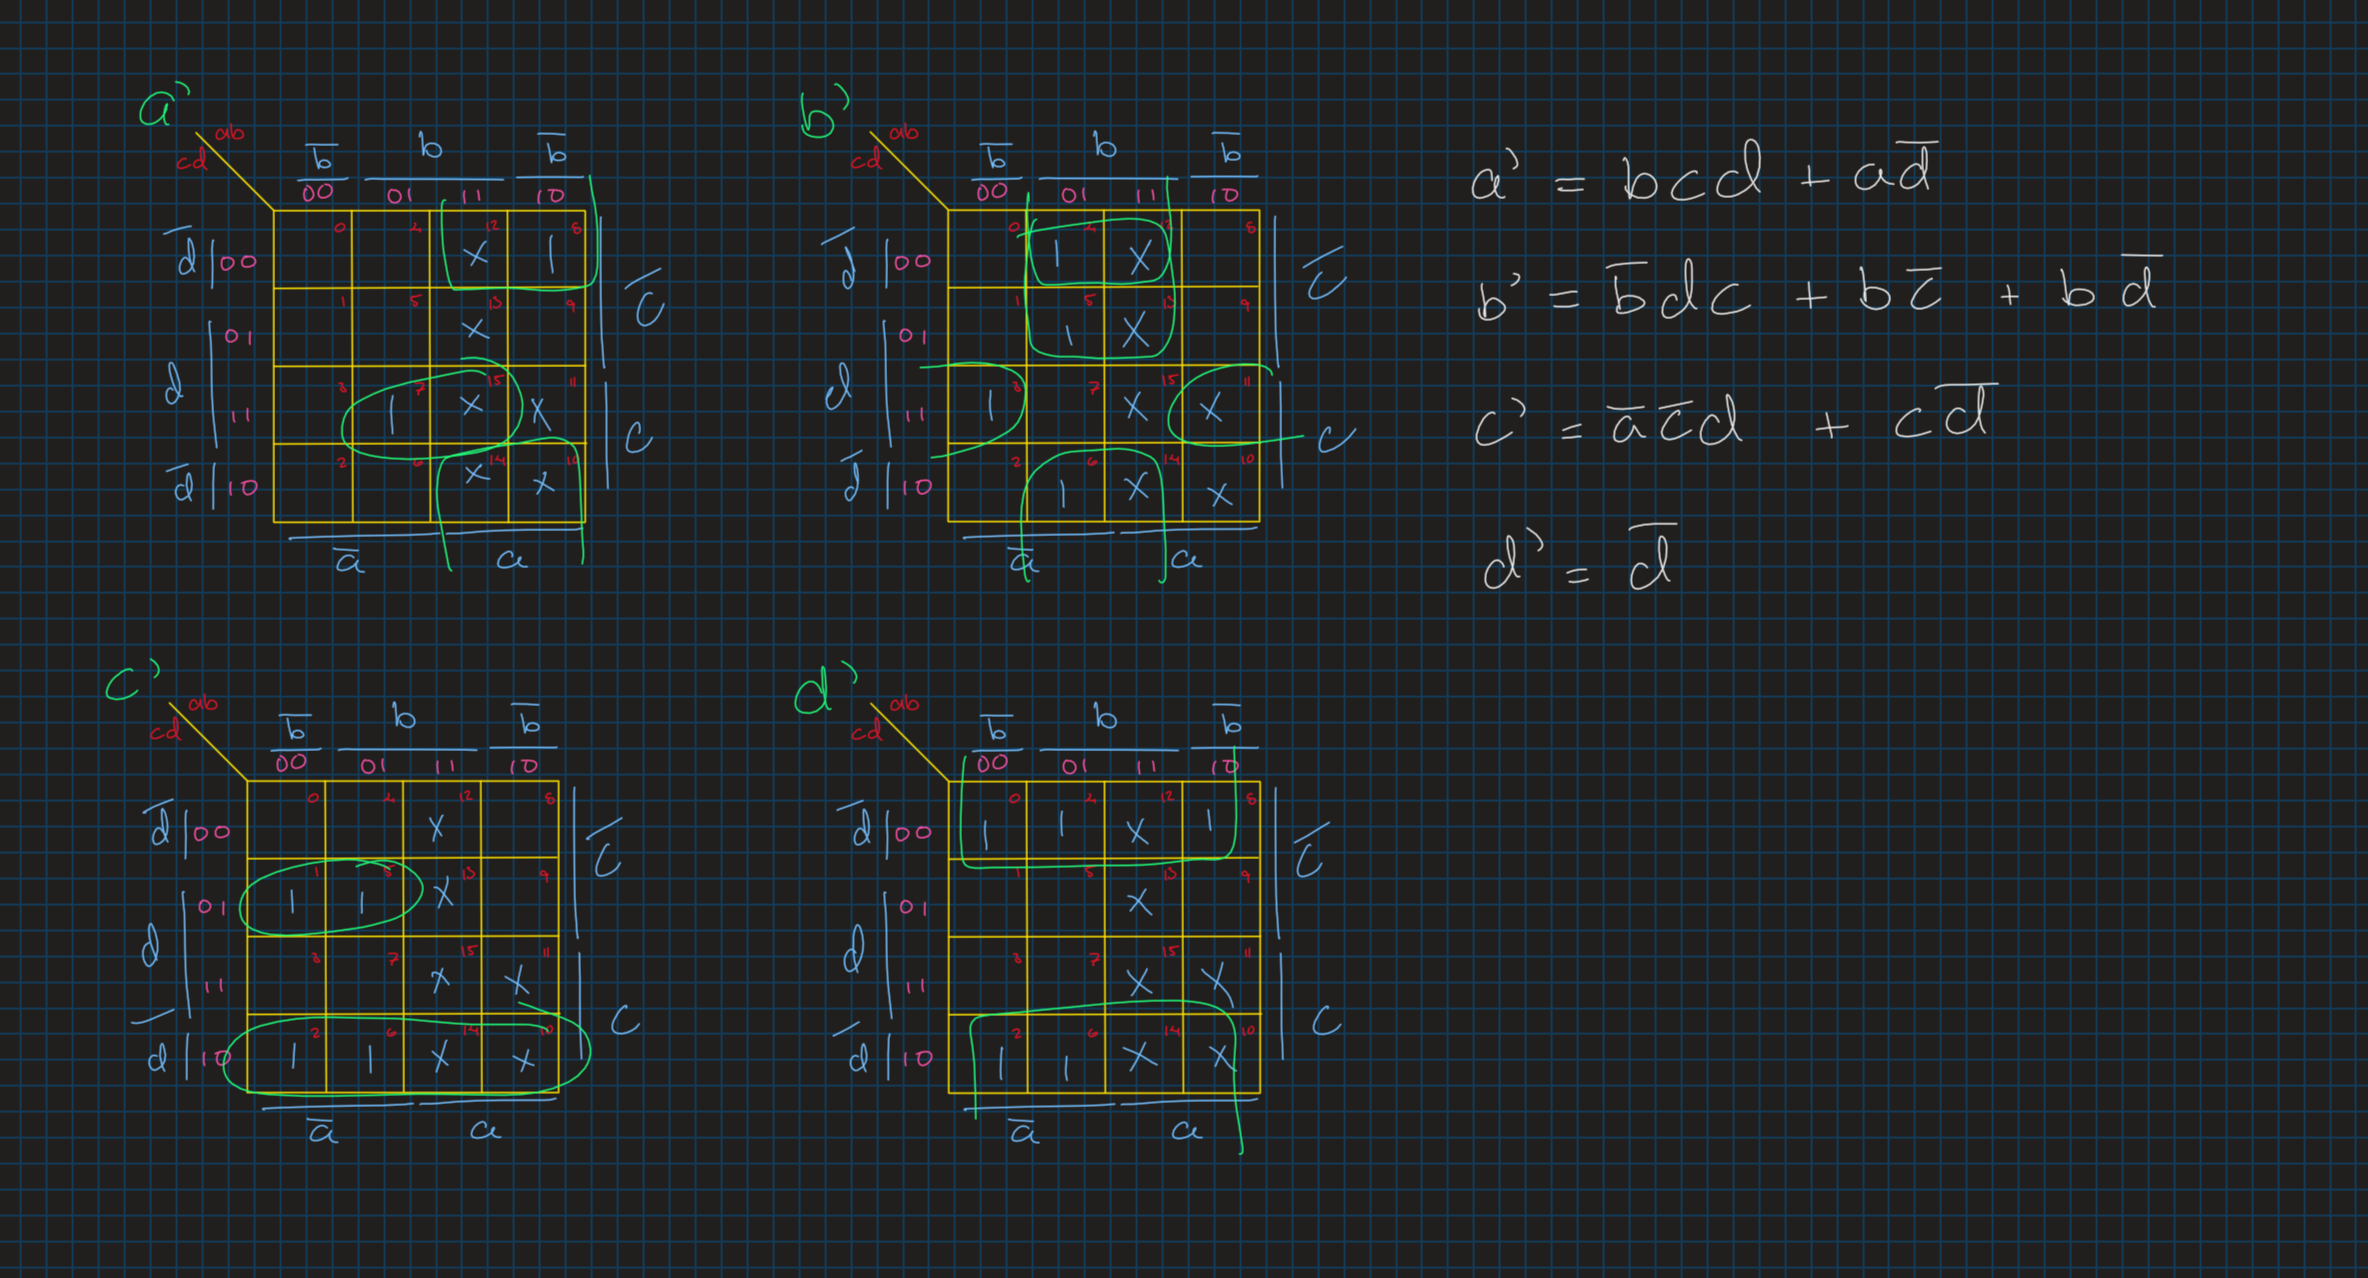 a’
ab
cd
b̅ b b̅
00 01 11 10
d̅ 00 0 4 12 X 8 1 c̅
01 1 5 13 X 9
d 11 3 7 1 15 X 11 X c
d̅ 10 2 6 14 X 10 X
a̅ a
b’
ab
cd
b̅ b b̅
00 01 11 10
d̅ 00 0 4 1 12 X 8 c̅
01 1 5 1 13 X 9
d 11 3 1 7 15 X 11 X c
d̅ 10 2 6 1 14 X 10 X
a̅ a
a’ = bcd + ad̅
b’ = b̅dc + bc̅ + bd̅
c’ = a̅c̅d + cd̅
d’ = d̅
c’
ab
cd
b̅ b b̅
00 01 11 10
d̅ 00 0 4 12 X 8 c̅
01 1 1 5 1 13 X 9
d 11 3 7 15 X 11 X c
d̅ 10 2 1 6 1 14 X 10 X
a̅ a
d’
ab
cd
b̅ b b̅
00 01 11 10
d̅ 00 0 1 4 1 12 X 8 1 c̅
01 1 5 13 X 9
d 11 3 7 15 X 11 X c
d̅ 10 2 1 6 1 14 X 10 X
a̅ a